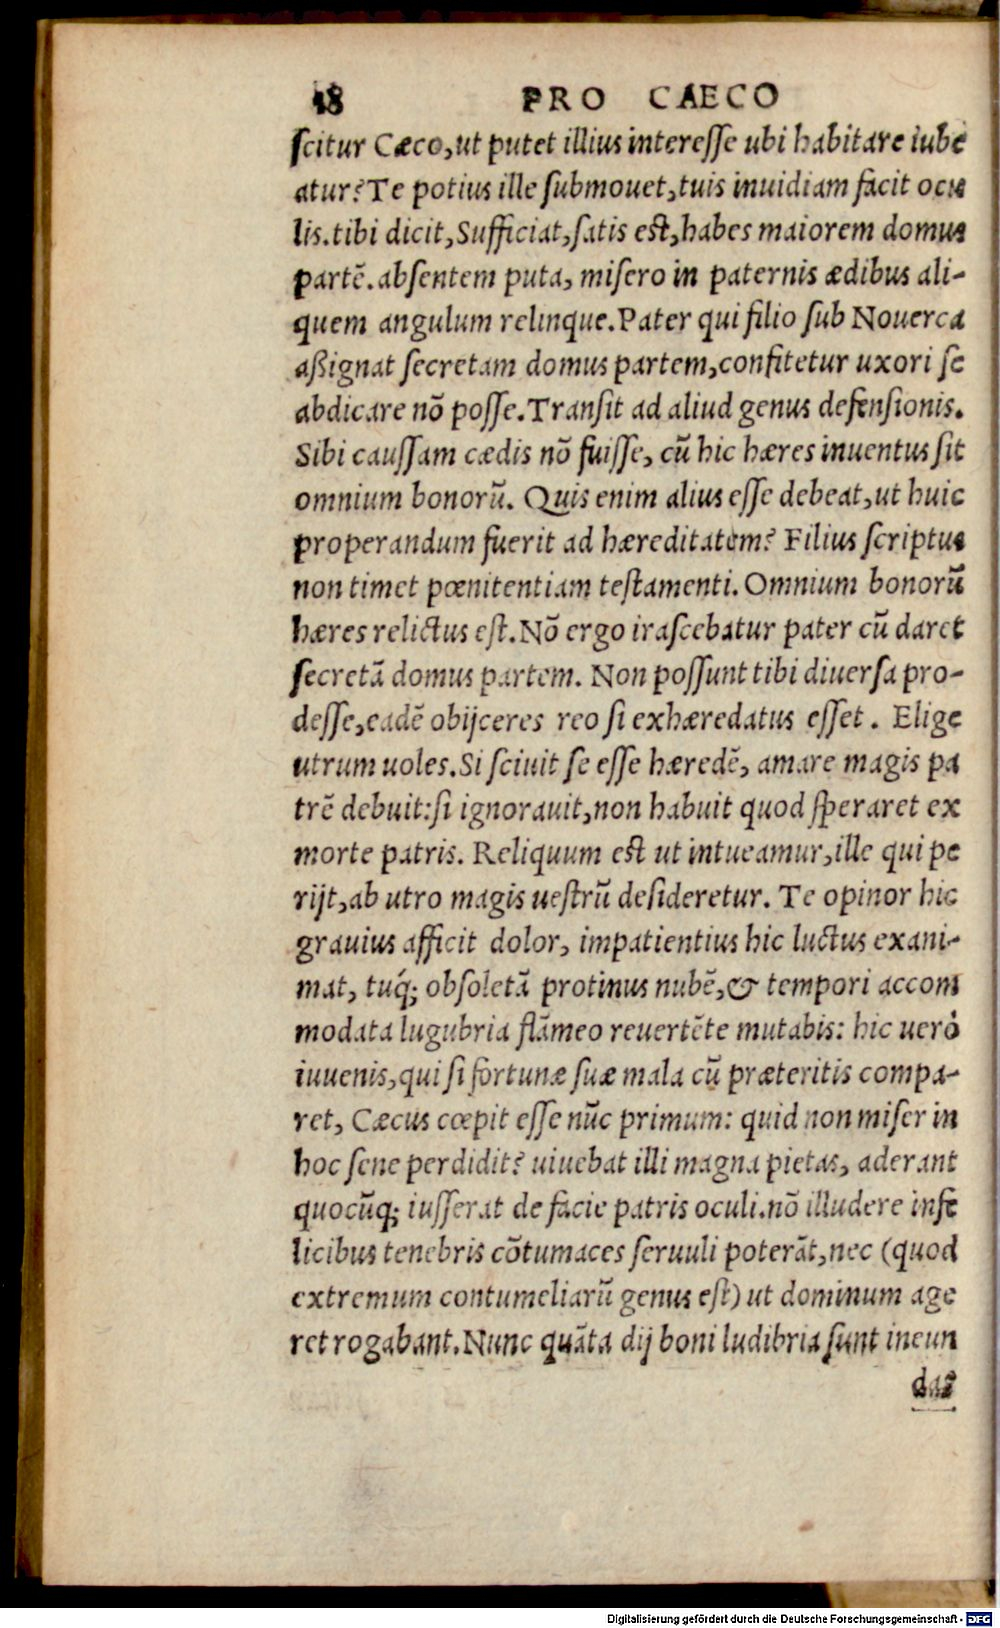 18 PRO CAECO
scitur Cæco, ut putet illius interesse ubi habitare iube
atur? Te potius ille submouet, tuis inuidiam facit ocu
lis. tibi dicit, Sufficiat, satis est, habes maiorem domus
partẽ. absentem puta, misero in paternis ædibus ali-
quem angulum relinque. Pater qui filio sub Nouerca
aßignat secretam domus partem, confitetur uxori se
abdicare nõ posse. Transit ad aliud genus defensionis.
Sibi caussam cædis nõ fuisse, cũ hic hæres inuentus sit
omnium bonorũ. Quis enim alius esse debeat, ut huic
properandum fuerit ad hæreditatem? Filius scriptus
non timet pœnitentiam testamenti. Omnium bonorũ
hæres relictus est. Nõ ergo irascebatur pater cũ daret
secretã domus partem. Non possunt tibi diuersa pro-
desse, eadẽ obijceres reo si exhæredatus esset. Elige
utrum uoles. Si sciuit se esse hæredẽ, amare magis pa
trẽ debuit: si ignorauit, non habuit quod speraret ex
morte patris. Reliquum est ut intueamur, ille qui pe
rijt, ab utro magis uestrũ desideretur. Te opinor hic
grauius afficit dolor, impatientius hic luctus exani-
mat, tuq́; obsoletã protinus nubẽ, & tempori accom
modata lugubria flãmeo reuertẽte mutabis: hic uerò
iuuenis, qui si fortunæ suæ mala cũ præteritis compa-
ret, Cæcus cœpit esse nũc primum: quid non miser in
hoc sene perdidit? uiuebat illi magna pietas, aderant
quocũq; iusserat de facie patris oculi. nõ illudere infe
licibus tenebris cõtumaces seruuli poterãt, nec (quod
extremum contumeliarũ genus est) ut dominum age
ret rogabant. Nunc quãta dij boni ludibria sunt ineun
da?
Digitalisierung gefördert durch die Deutsche Forschungsgemeinschaft - DFG